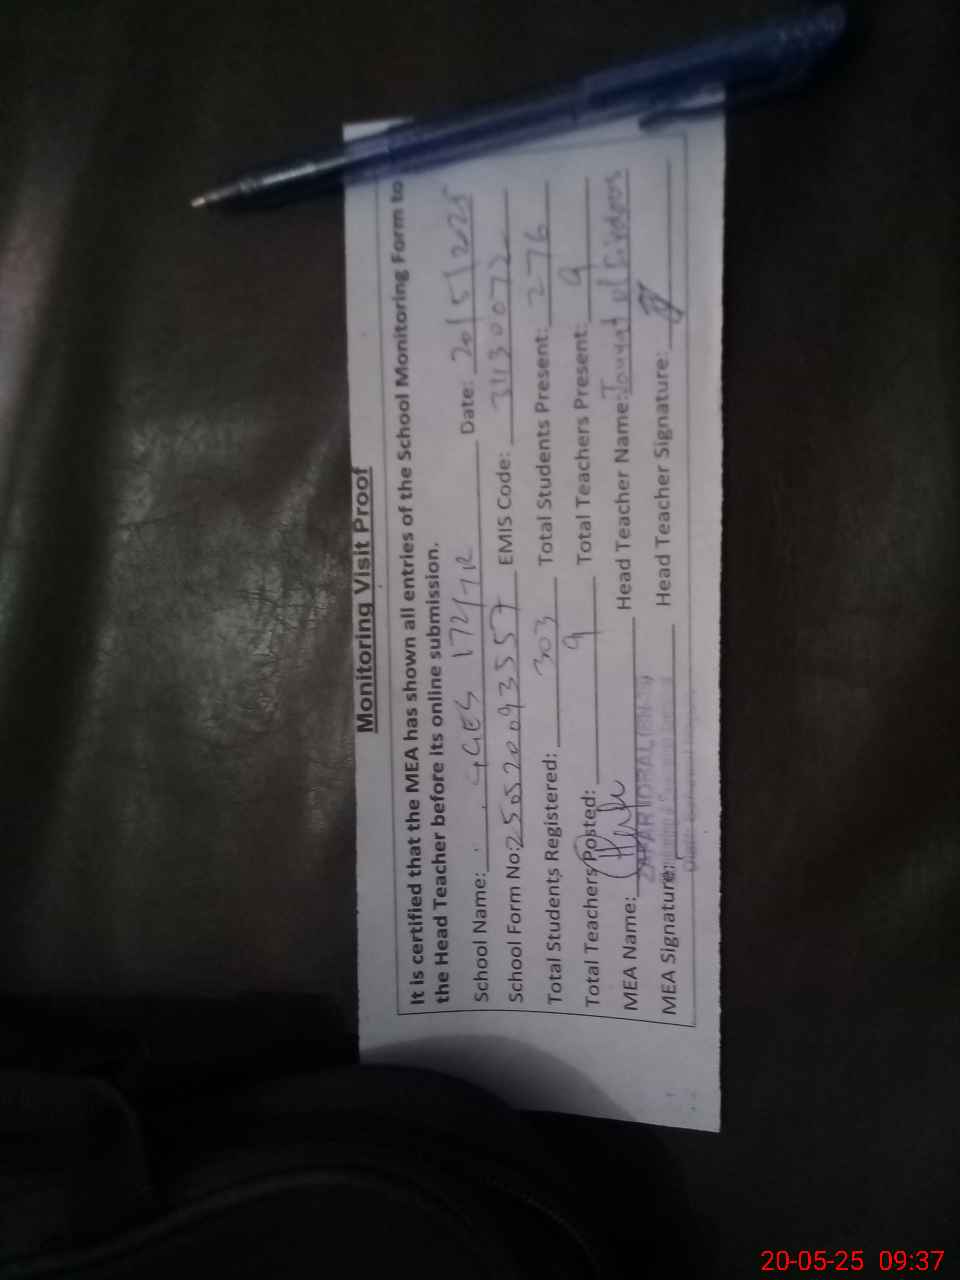 Monitoring Visit Proof
It is certified that the MEA has shown all entries of the School Monitoring Form to
the Head Teacher before its online submission.
School Name: GGES 172/7R Date: 20/5/2025
School Form No: 250520093557 EMIS Code:
Total Students Registered: 303 Total Students Present: 276
Total Teachers Posted: 9 Total Teachers Present: 9
MEA Name: Head Teacher Name: Jannat ul Firdous
ZAFAR IQBAL
MEA Signature: Head Teacher Signature:
20-05-25 09:37